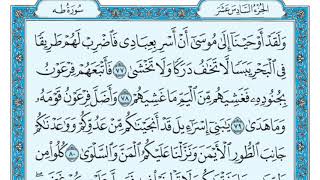 الجزء السادس عشر
سورة طه
وَلَقَدْ أَوْحَيْنَا إِلَى مُوسَى أَنْ أَسْرِ بِعِبَادِي فَاضْرِبْ لَهُمْ طَرِيقًا
فِي الْبَحْرِ يَبَسًا لَا تَخَافُ دَرَكًا وَلَا تَخْشَى ٧٧ فَأَتْبَعَهُمْ فِرْعَوْنُ
بِجُنُودِهِ فَغَشِيَهُمْ مِنَ الْيَمِّ مَا غَشِيَهُمْ ٧٨ وَأَضَلَّ فِرْعَوْنُ قَوْمَهُ
وَمَا هَدَى ٧٩ يَا بَنِي إِسْرَائِيلَ قَدْ أَنْجَيْنَاكُمْ مِنْ عَدُوِّكُمْ وَوَاعَدْنَاكُمْ
جَانِبَ الطُّورِ الْأَيْمَنَ وَنَزَّلْنَا عَلَيْكُمُ الْمَنَّ وَالسَّلْوَى ٨٠ كُلُوا مِنْ